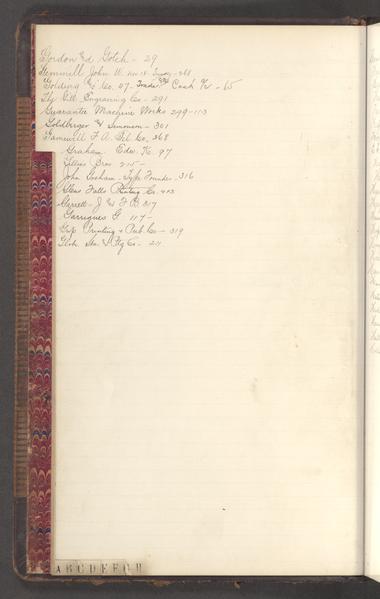 Gordon & Gotch - 29
Gemmill John W.
Golding & Co. 47. Trade Cash - 65
Gly Eng Engraving Co - 291
Guarantee Machine Works 299-113
Goldberger & Simonson - 301
Gamewell F A Tel Co. 368
Graham Edw. K. 97
Gillies Bros 215 -
John Graham - Type Founder - 316
Glens Falls Printing Co. 403
Garrett - J & F B. 317
Garrigues G 117 -
Gip Printing & Pub Co - 319
Globe Sta & Ptg Co - 211
A B C D E F G H